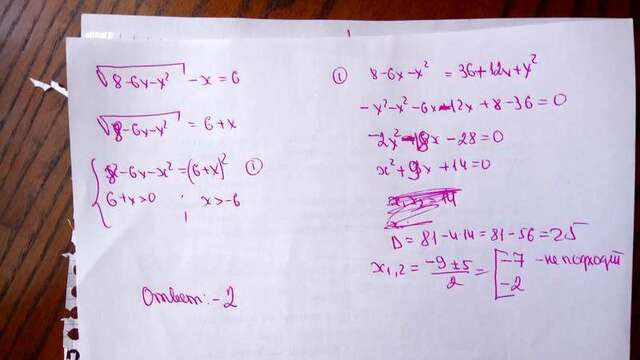 √8-6x-x² - x = 6
√8-6x-x² = 6+x
{ 8-6x-x² = (6+x)² ①
6+x>0 ; x>-6
Ответ: -2
① 8-6x-x² = 36+12x+x²
-x²-x²-6x-12x+8-36=0
-2x²-18x-28=0
x²+9x+14=0
D=81-4·14=81-56=25
x1,2 = (-9±5)/2 = [ -7 - не подходит
-2